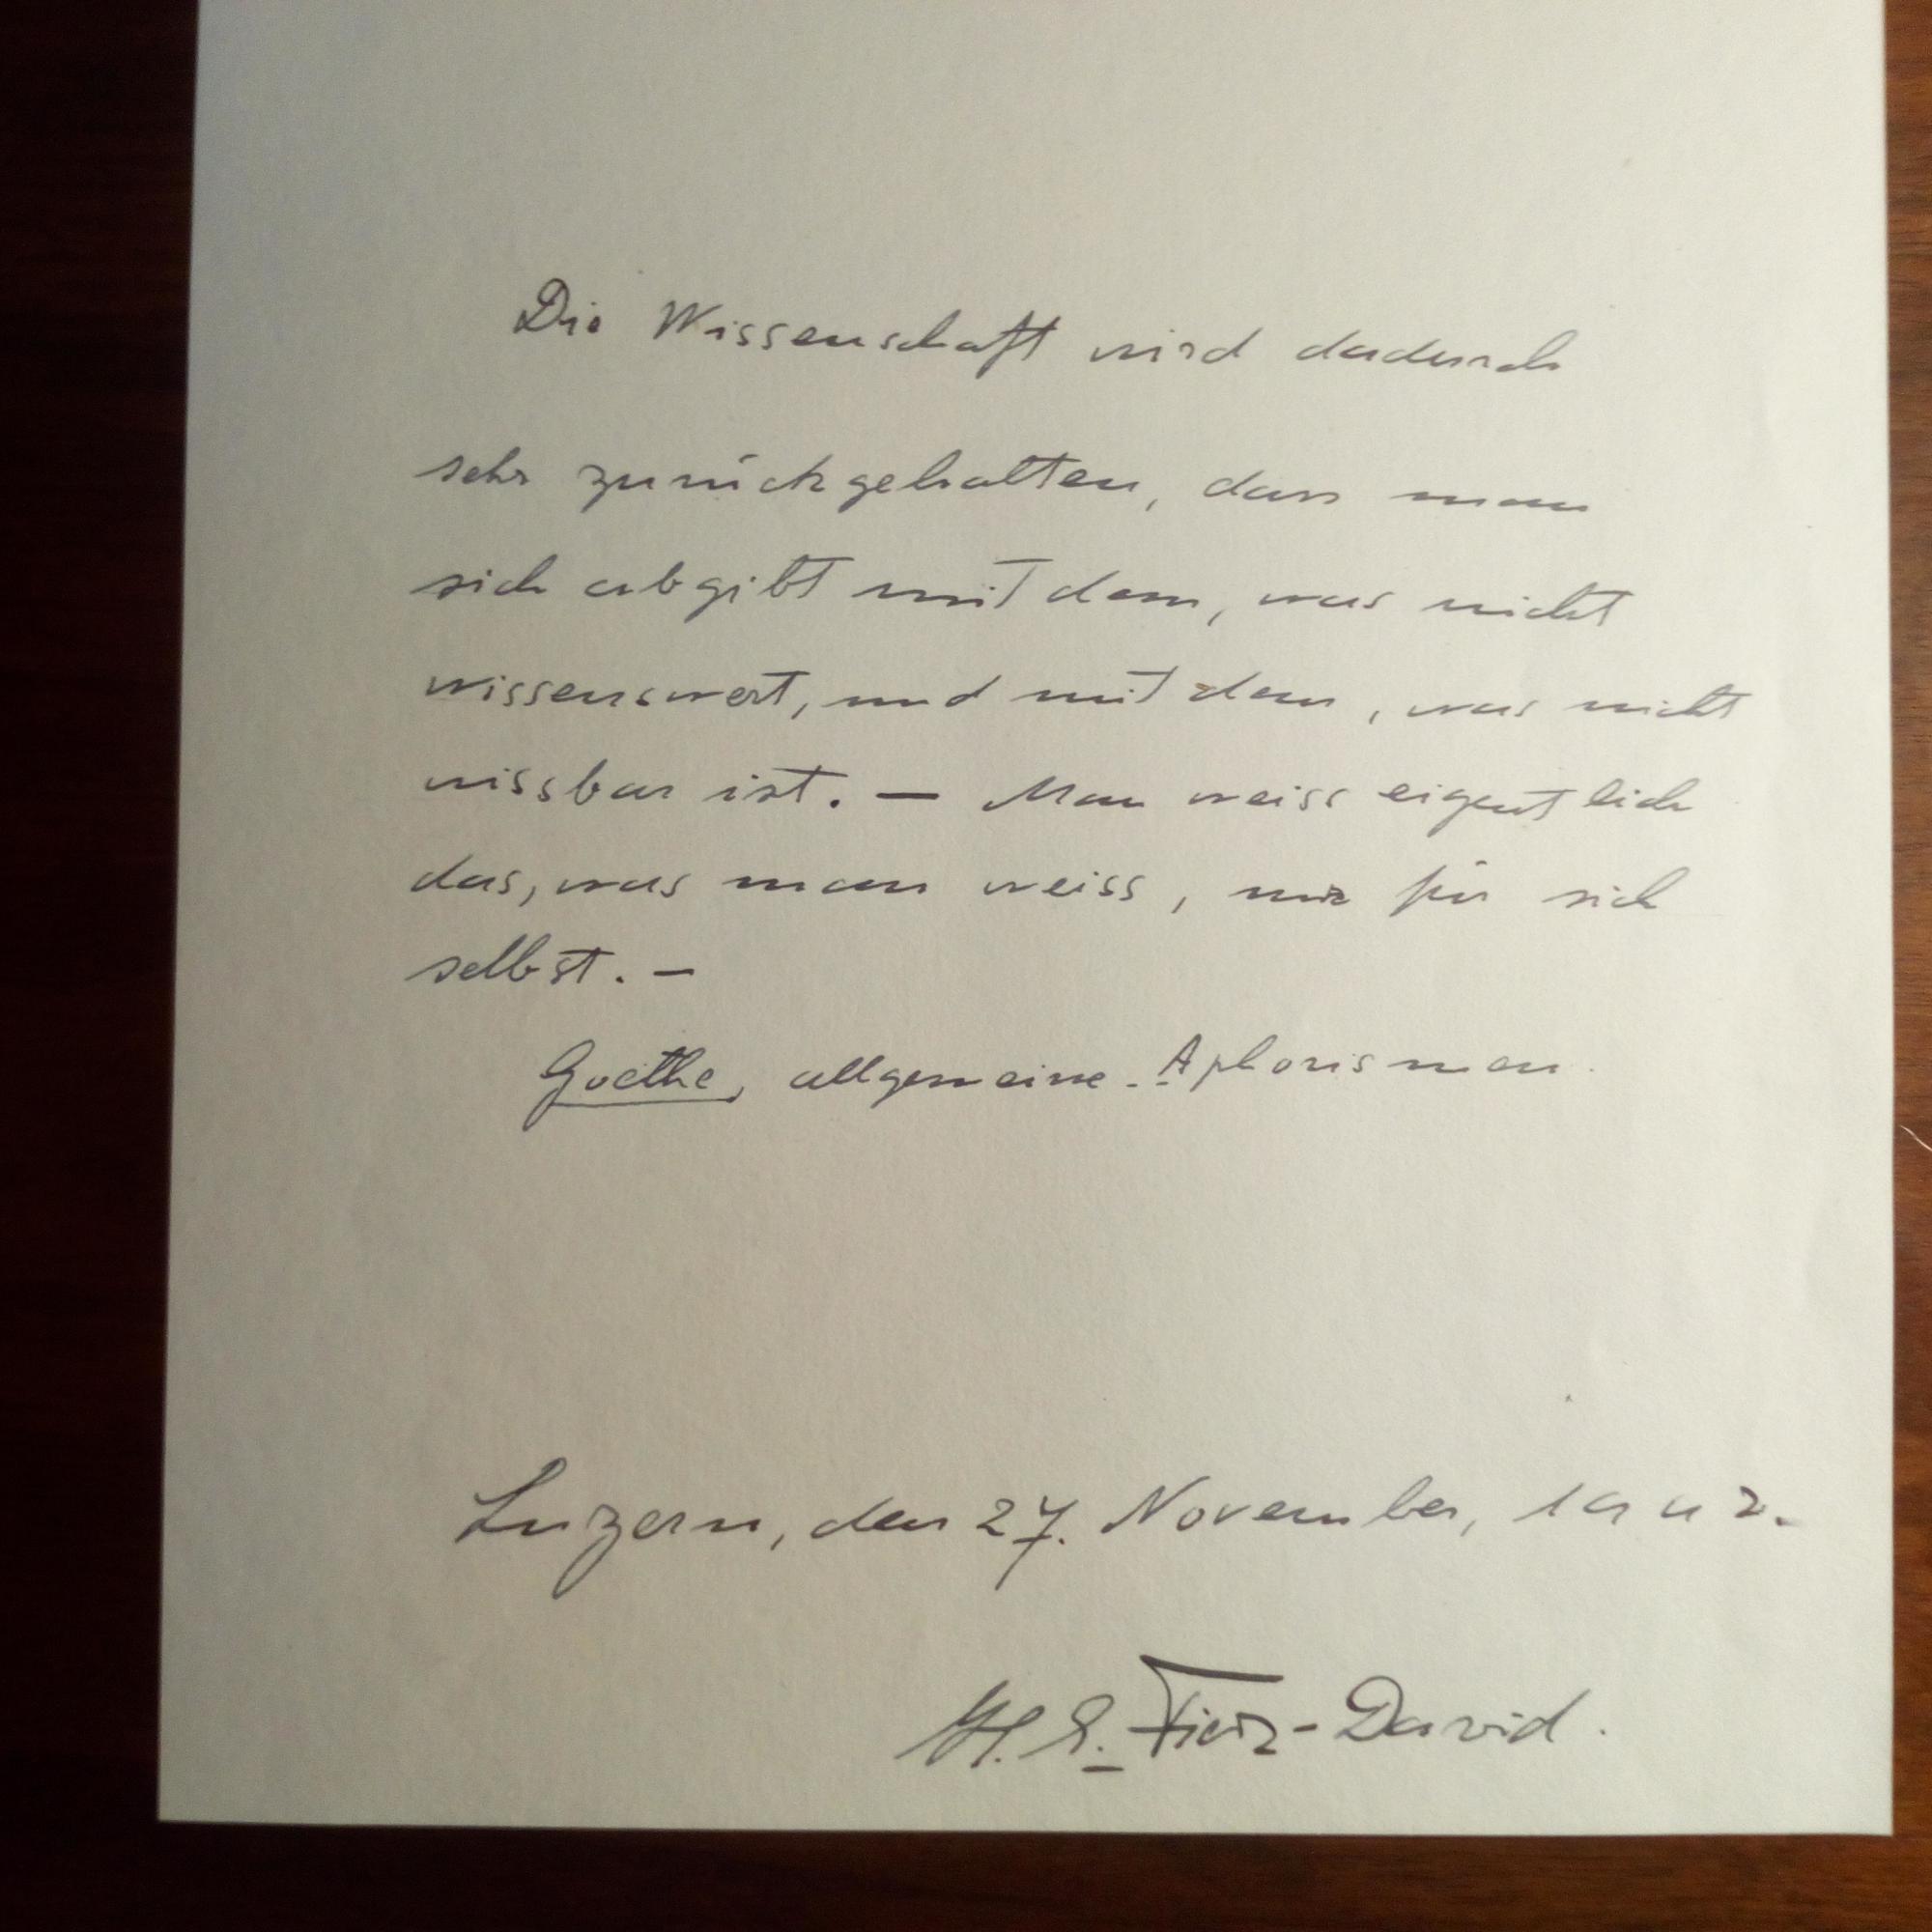 Die Wissenschaft wird dadurch
sehr zurückgehalten, dass man
sich abgibt mit dem, was nicht
wissenswert, und mit dem, was nicht
wissbar ist. — Man weiss eigentlich
das, was man weiss, nur für sich
selbst. —
Goethe, allgemeine Aphorismen.
Luzern, den 27. November, 1942.
H. E. Fierz-David.